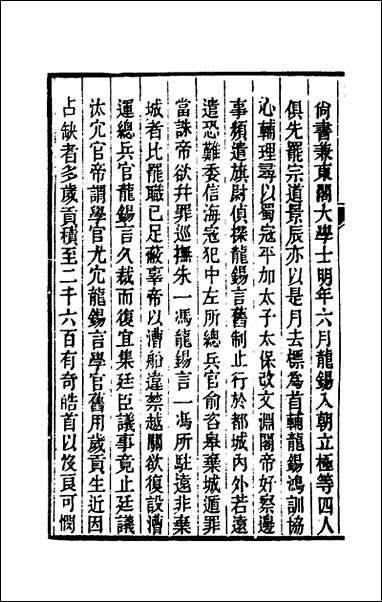 尙書兼東閣大學士明年六月龍錫入朝立極等四人
俱先罷宗道景辰亦以是月去標爲首輔龍錫鴻訓協
心輔理尋以蜀寇平加太子太保改文淵閣帝好察邊
事頻遣旗尉偵探龍錫言舊制止行於都城內外若遠
遣恐難委信海寇犯中左所總兵官俞咨皐棄城遁罪
當誅帝欲幷罪巡撫朱一馮龍錫言一馮所駐遠非棄
城者比罷職已足蔽辜帝以漕船違禁越關欲復設漕
運總兵官龍錫言久裁而復宜集廷臣議事竟止廷議
汰冗官帝謂學官尤冗龍錫言學官舊用歲貢生近因
占缺者多歲貢積至二千六百有奇皓首以沒良可憫